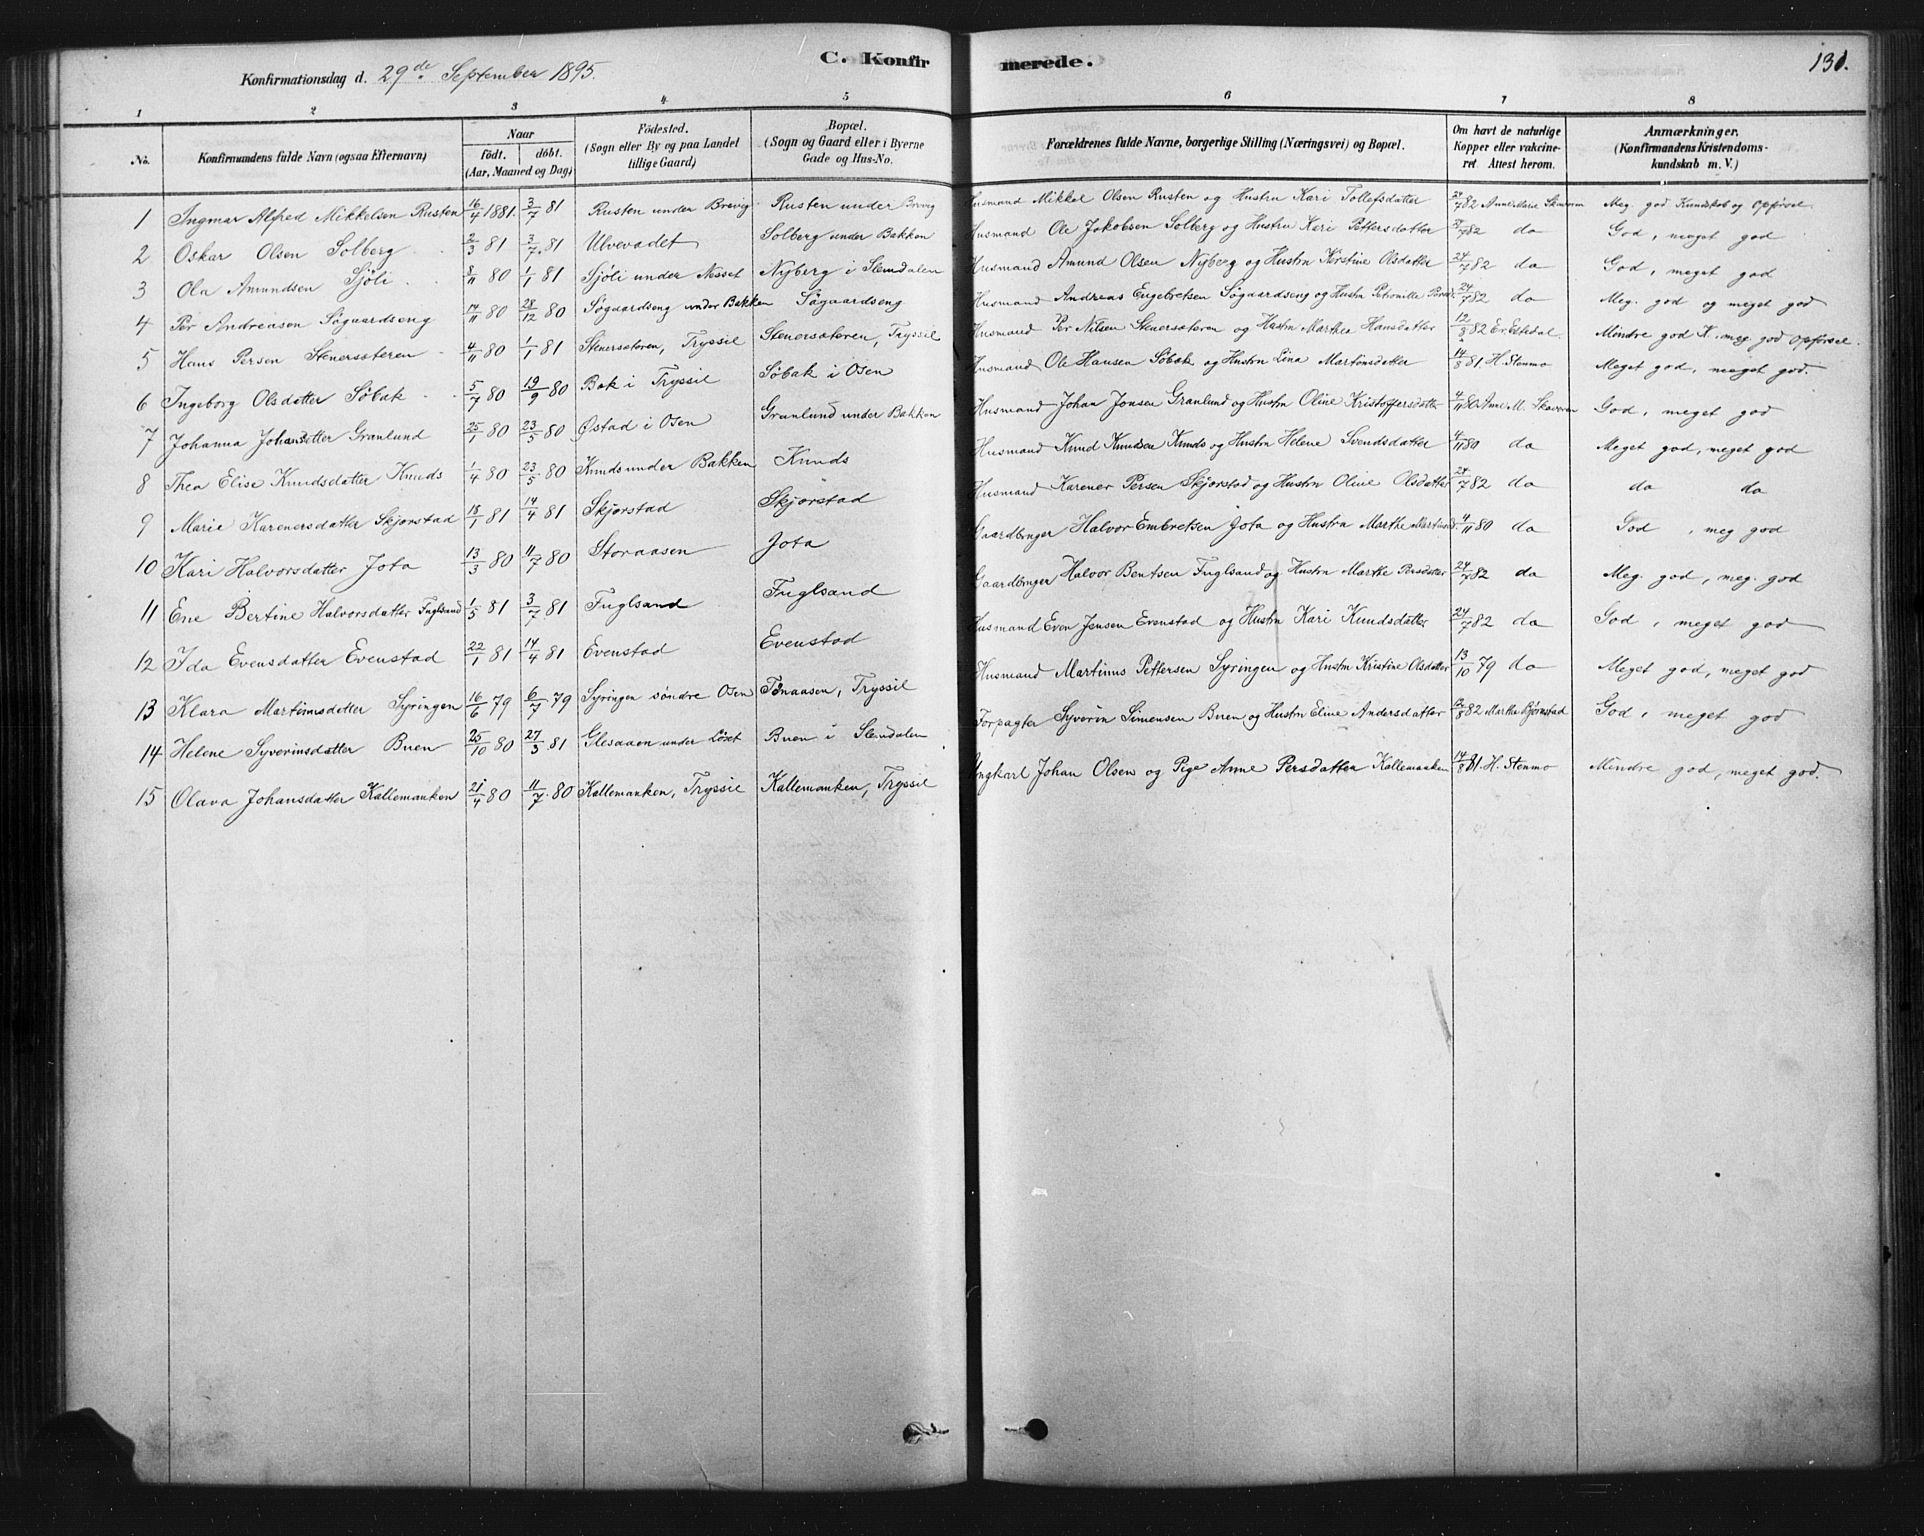 C. Konfirmerede.
130.
Konfirmationsdag d. 29de September 1895.
1 2 3 4 5 6 7 8
No. Konfirmandens fulde Navn (ogsaa Efternavn) Naar født. døbt. (Aar, Maaned og Dag) Födested. (Sogn eller By og paa Landet tillige Gaard) Bopæl. (Sogn og Gaard eller i Byerne Gade og Hus-No. Forældrenes fulde Navne, borgerlige Stilling (Næringsvei) og Bopæl. Om havt de naturlige Kopper eller vakcineret. Attest herom. Anmærkninger. (Konfirmandens Kristendomskundskab m. V.)
1 Ingmar Alfred Mikkelsen Rusten 16/4 1881. 3/7 81 Rusten under Brevig Rusten under Brevig Husmand Mikkel Olsen Rusten og Hustru Kari Tollefsdatter 24/7 82 Anne Marie Skaveren Meg. god Kundskab og Opførsel
2 Oskar Olsen Solberg 2/3 81 3/7 81 Ulvevadet Solberg under Bakken Husmand Ole Jakobsen Solberg og Hustru Kari Pettersdatter /7 82 do God, meget god
3 Ola Amundsen Sjöli 8/11 80 1/1 81 Sjöli under Nesset Nyberg i Slemdalen Husmand Amund Olsen Nyberg og Hustru Kirstine Olsdatter 24/7 82 do God, meget god
4 Per Andreasen Søgaardseng 14/11 80 28/12 80 Søgaardseng under Bakken Søgaardseng Husmand Andreas Engebretsen Søgaardseng og Hustru Petronille 24/7 82 do Meg. god og meget god
5 Hans Persen Stenersæteren 4/11 80 1/1 81 Stenersæteren, Tryssil Stenersæteren, Tryssil Husmand Per Nilsen Stenersæteren og Hustru Marthea Hansdatter 12/8 82 Er. Estedal. Mindre god K. meg. god Opførsel.
6 Ingeborg Olsdatter Søbak 5/7 80 19/9 80 Bak i Tryssil Søbak i Osen Husmand Ole Hansen Søbak og Hustru Lina Martinsdatter 14/8 81 H. Stenmo Meget god, meget god
7 Johanna Johansdatter Granlund 25/1 80 23/5 80 Østad i Osen Granlund under Bakken Husmand Johan Jonsen Granlund og Hustru Oline Kristoffersdatter 4/11 80 Anne M. Skaveren God, meget god
8 Thea Elise Knudsdatter Knuds 1/4 80 23/5 80 Knuds under Bakken Knuds Husmand Knud Knudsen Knuds og Hustru Helene Svendsdatter 4/11 80 do Meget god, meget god
9 Marie Karenersdatter Skjørstad 18/1 81 14/4 81 Skjørstad Skjørstad Husmand Karener Persen Skjørstad og Hustru Oline Olsdatter 24/7 82 do do do
10 Kari Halvorsdatter Jota 13/3 80 11/7 80 Storaasen Jota Gaardbruger Halvor Embretsen Jota og Hustru Marthe 4/11 80 do God, meg god
11 Ene Bertine Halvorsdatter Fuglsand 1/5 81 3/7 81 Fuglsand Fuglsand Gaardbruger Halvor Bentsen Fuglsand og Hustru Marthe Persdatter 24/7 82 do Meg. god, meg. god
12 Ida Evensdatter Evenstad 22/1 81 14/4 81 Evenstad Evenstad Husmand Even Jensen Evenstad og Hustru Kari Knudsdatter 24/7 82 do God, meget god
13 Klara Martinusdatter Syringen 16/6 79 6/7 79 Syringen søndre Osen Tryssil Husmand Martinus Pettersen Syringen og Hustru Kristine Olsdatter 13/10 79 do Meget god, meget god
14 Helene Syverinsdatter Buen 25/10 80 27/3 81 Glesaaen under Løset Buen i Slemdalen Forpagter Syverin Simensen Buen og Hustru Eline Andersdatter 12/8 82 Marthe Bjørnstad God, meget god
15 Olava Johansdatter Kallemanken 21/4 80 11/7 80 Kallemanken, Tryssil Kallemanken, Tryssil Ungkarl Johan Olsen og Pige Anne Persdatter Kallemanken 14/8 81. H. Stenmo Mindre god, meget god.